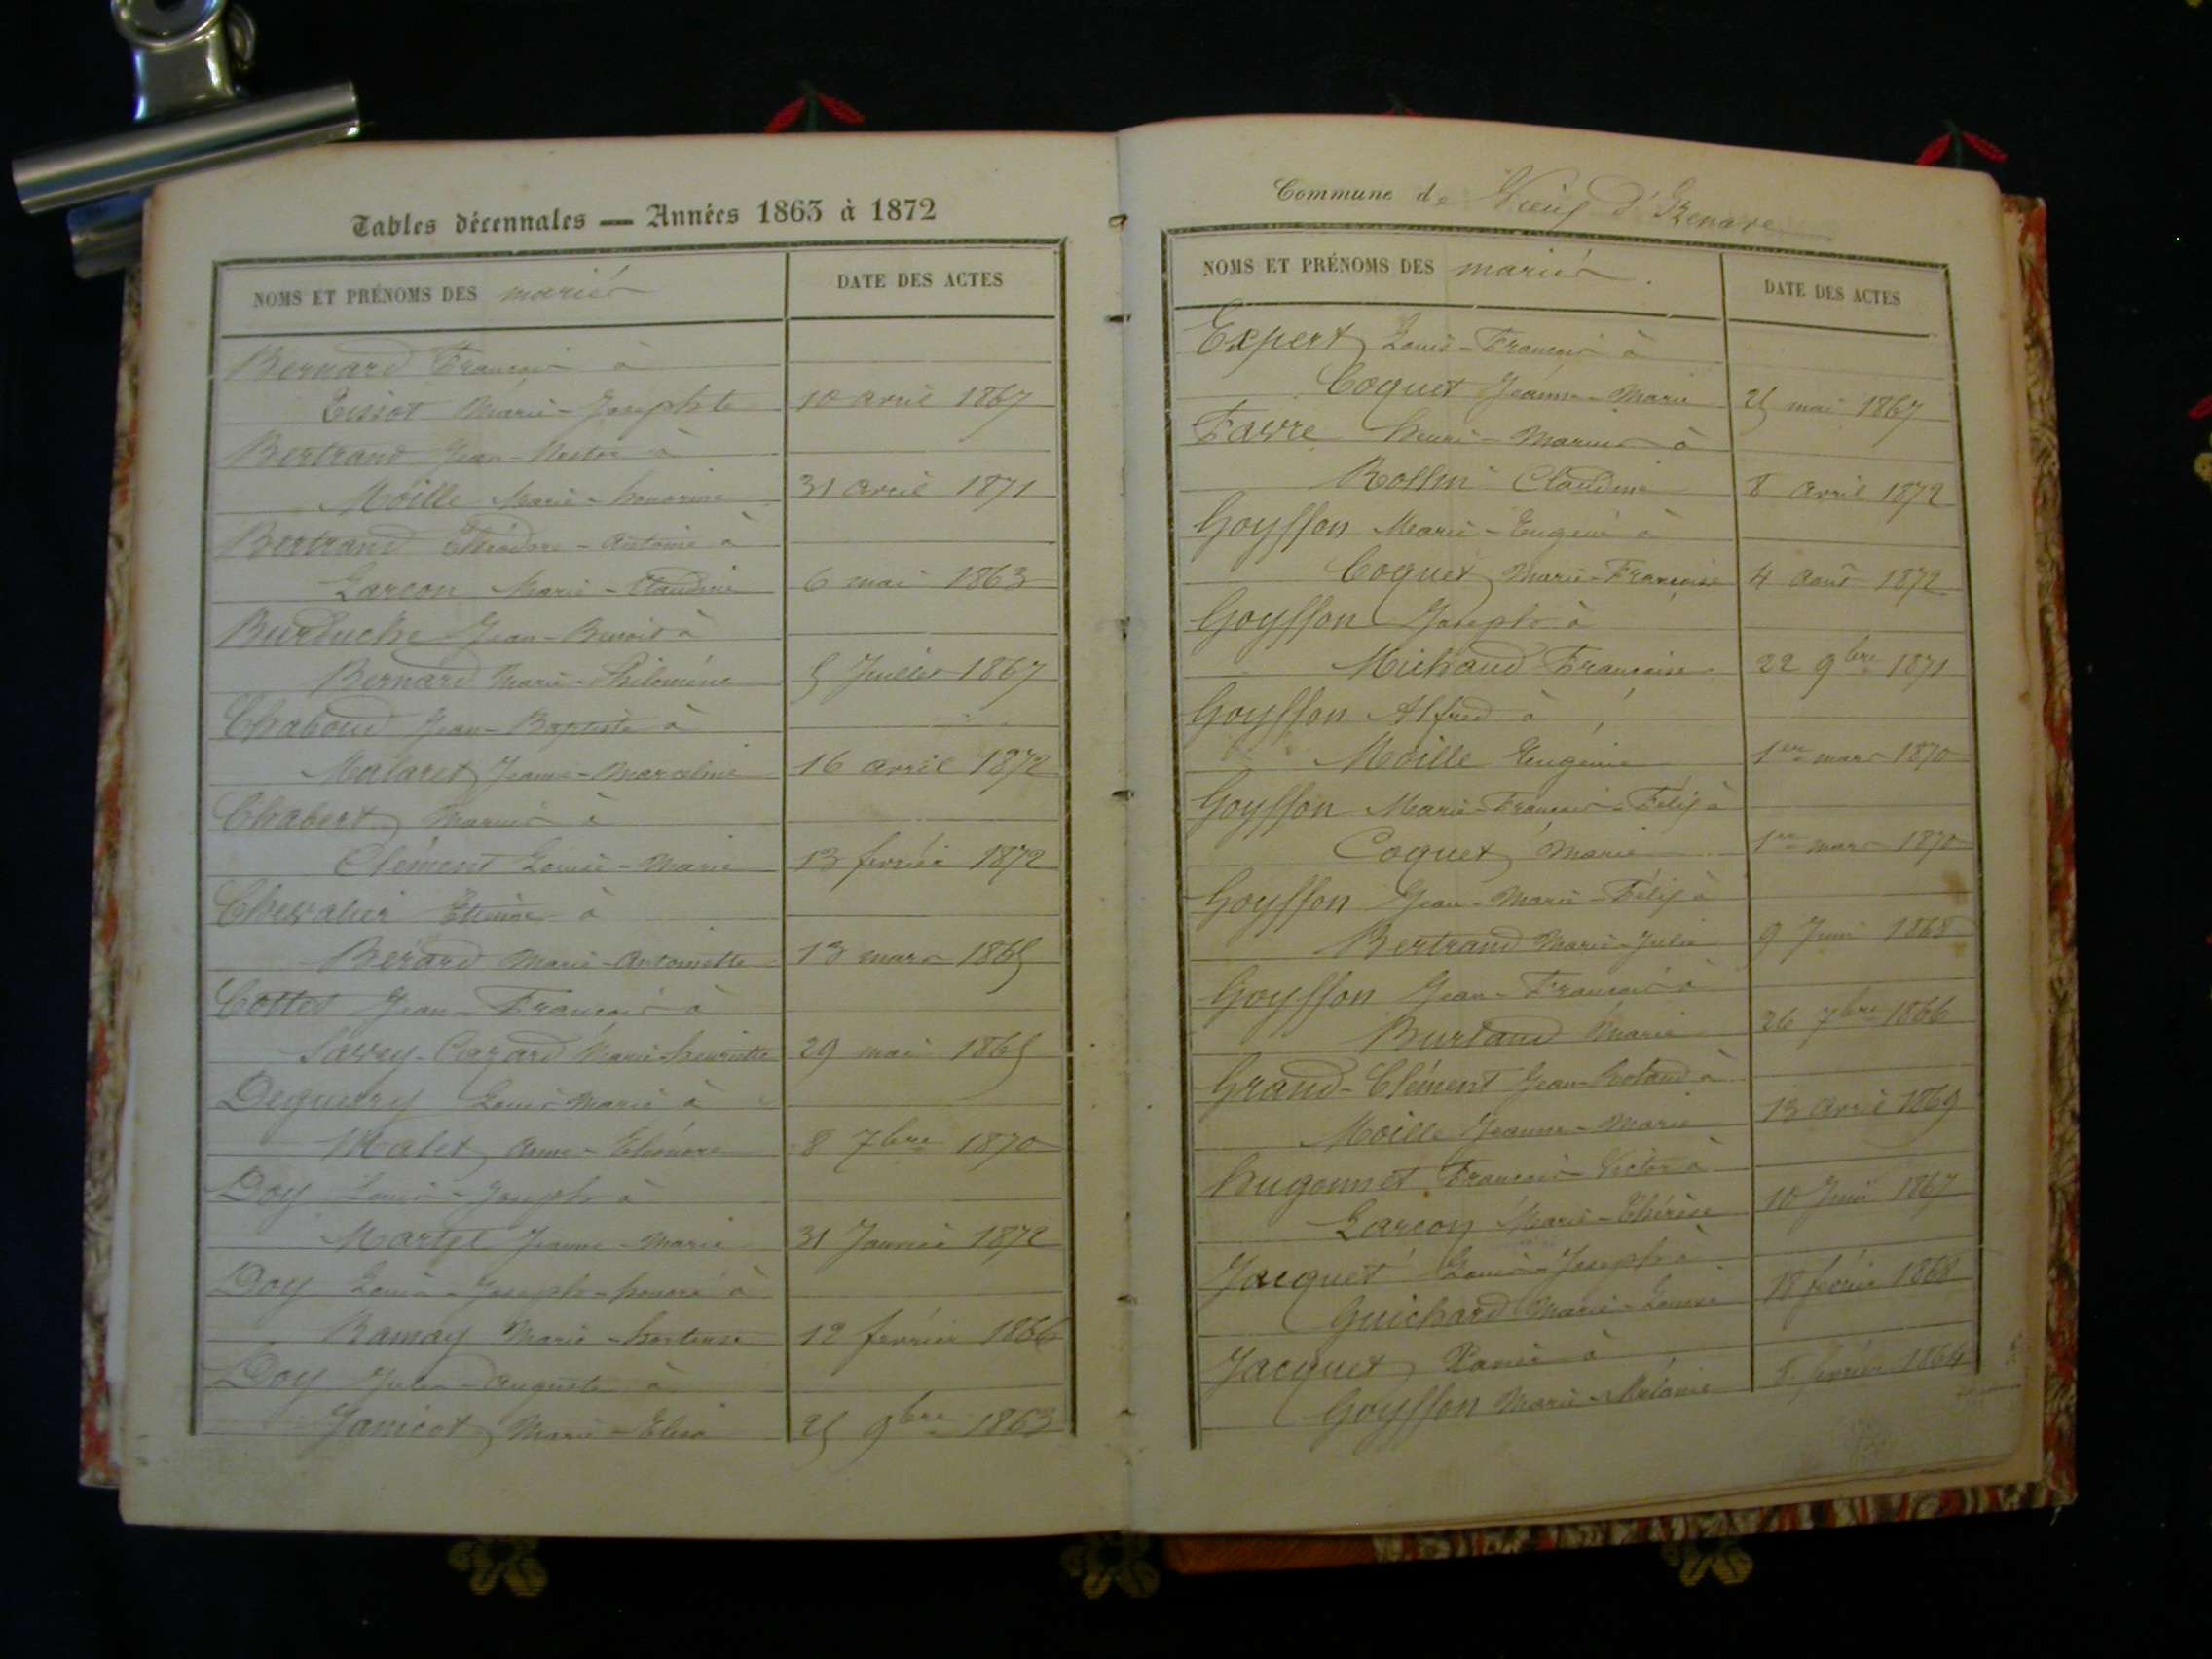 Tables décennales — Années 1863 à 1872
NOMS ET PRÉNOMS DES mariés
DATE DES ACTES
Bernard François à
Tissot Marie-Josephte 10 avril 1867
Bertrand Jean-Nestor à
Moille Marie-honorine 31 avril 1871
Bertrand Théodore-Antoine à
Garçon Marie-Claudine 6 mai 1863
Burduche Jean-Benoit à
Bernard Marie-Philomène 5 Juillet 1867
Chaboud Jean-Baptiste à
Malaret Jeanne-Marceline 16 avril 1872
Chabert Marius à
Clément Louise-Marie 13 février 1872
Chevalier Etienne à
Bérard Marie-Antoinette 13 mars 1865
Cottet Jean-François à
Savey-Cazard Marie-henriette 29 mai 1865
Deguerry Louis-Marie à
Malet Anne-Eléonore 8 7bre 1870
Doy Louis-Joseph à
Martel Jeanne-Marie 31 Janvier 1872
Doy Louis-Joseph-honoré à
Ramay Marie-hortense 12 février 1866
Doy Jules-Auguste à
Janicot Marie-Elisa 25 9bre 1863
Commune de Vieux d'Izenave
NOMS ET PRÉNOMS DES mariés
DATE DES ACTES
Expert Louis-François à
Coquet Jeanne-Marie 25 mai 1867
Favre henri-Marius à
Rollin Claudine 8 avril 1872
Goyffon Marie-Eugène à
Coquet Marie-Françoise 4 Août 1872
Goyffon Joseph à
Michaud Françoise 22 9bre 1871
Goyffon Alfred à
Moille Eugénie 1er mars 1870
Goyffon Marie-François-Félix à
Coquet Marie 1er mars 1870
Goyffon Jean-Marie-Félix à
Bertrand Marie-Julie 9 Juin 1868
Goyffon Jean-François à
Burtand Marie 26 7bre 1866
Grand-Clément Jean-Roland à
Moille Jeanne-Marie 13 avril 1869
hugonnet François-Victor à
Garçon Marie-Thérèse 10 Juin 1867
Jacquet Louis-Joseph à
Guichard Marie-Louise 18 février 1868
Jacquet à
Goyffon Marie-Mélanie 8 février 1864